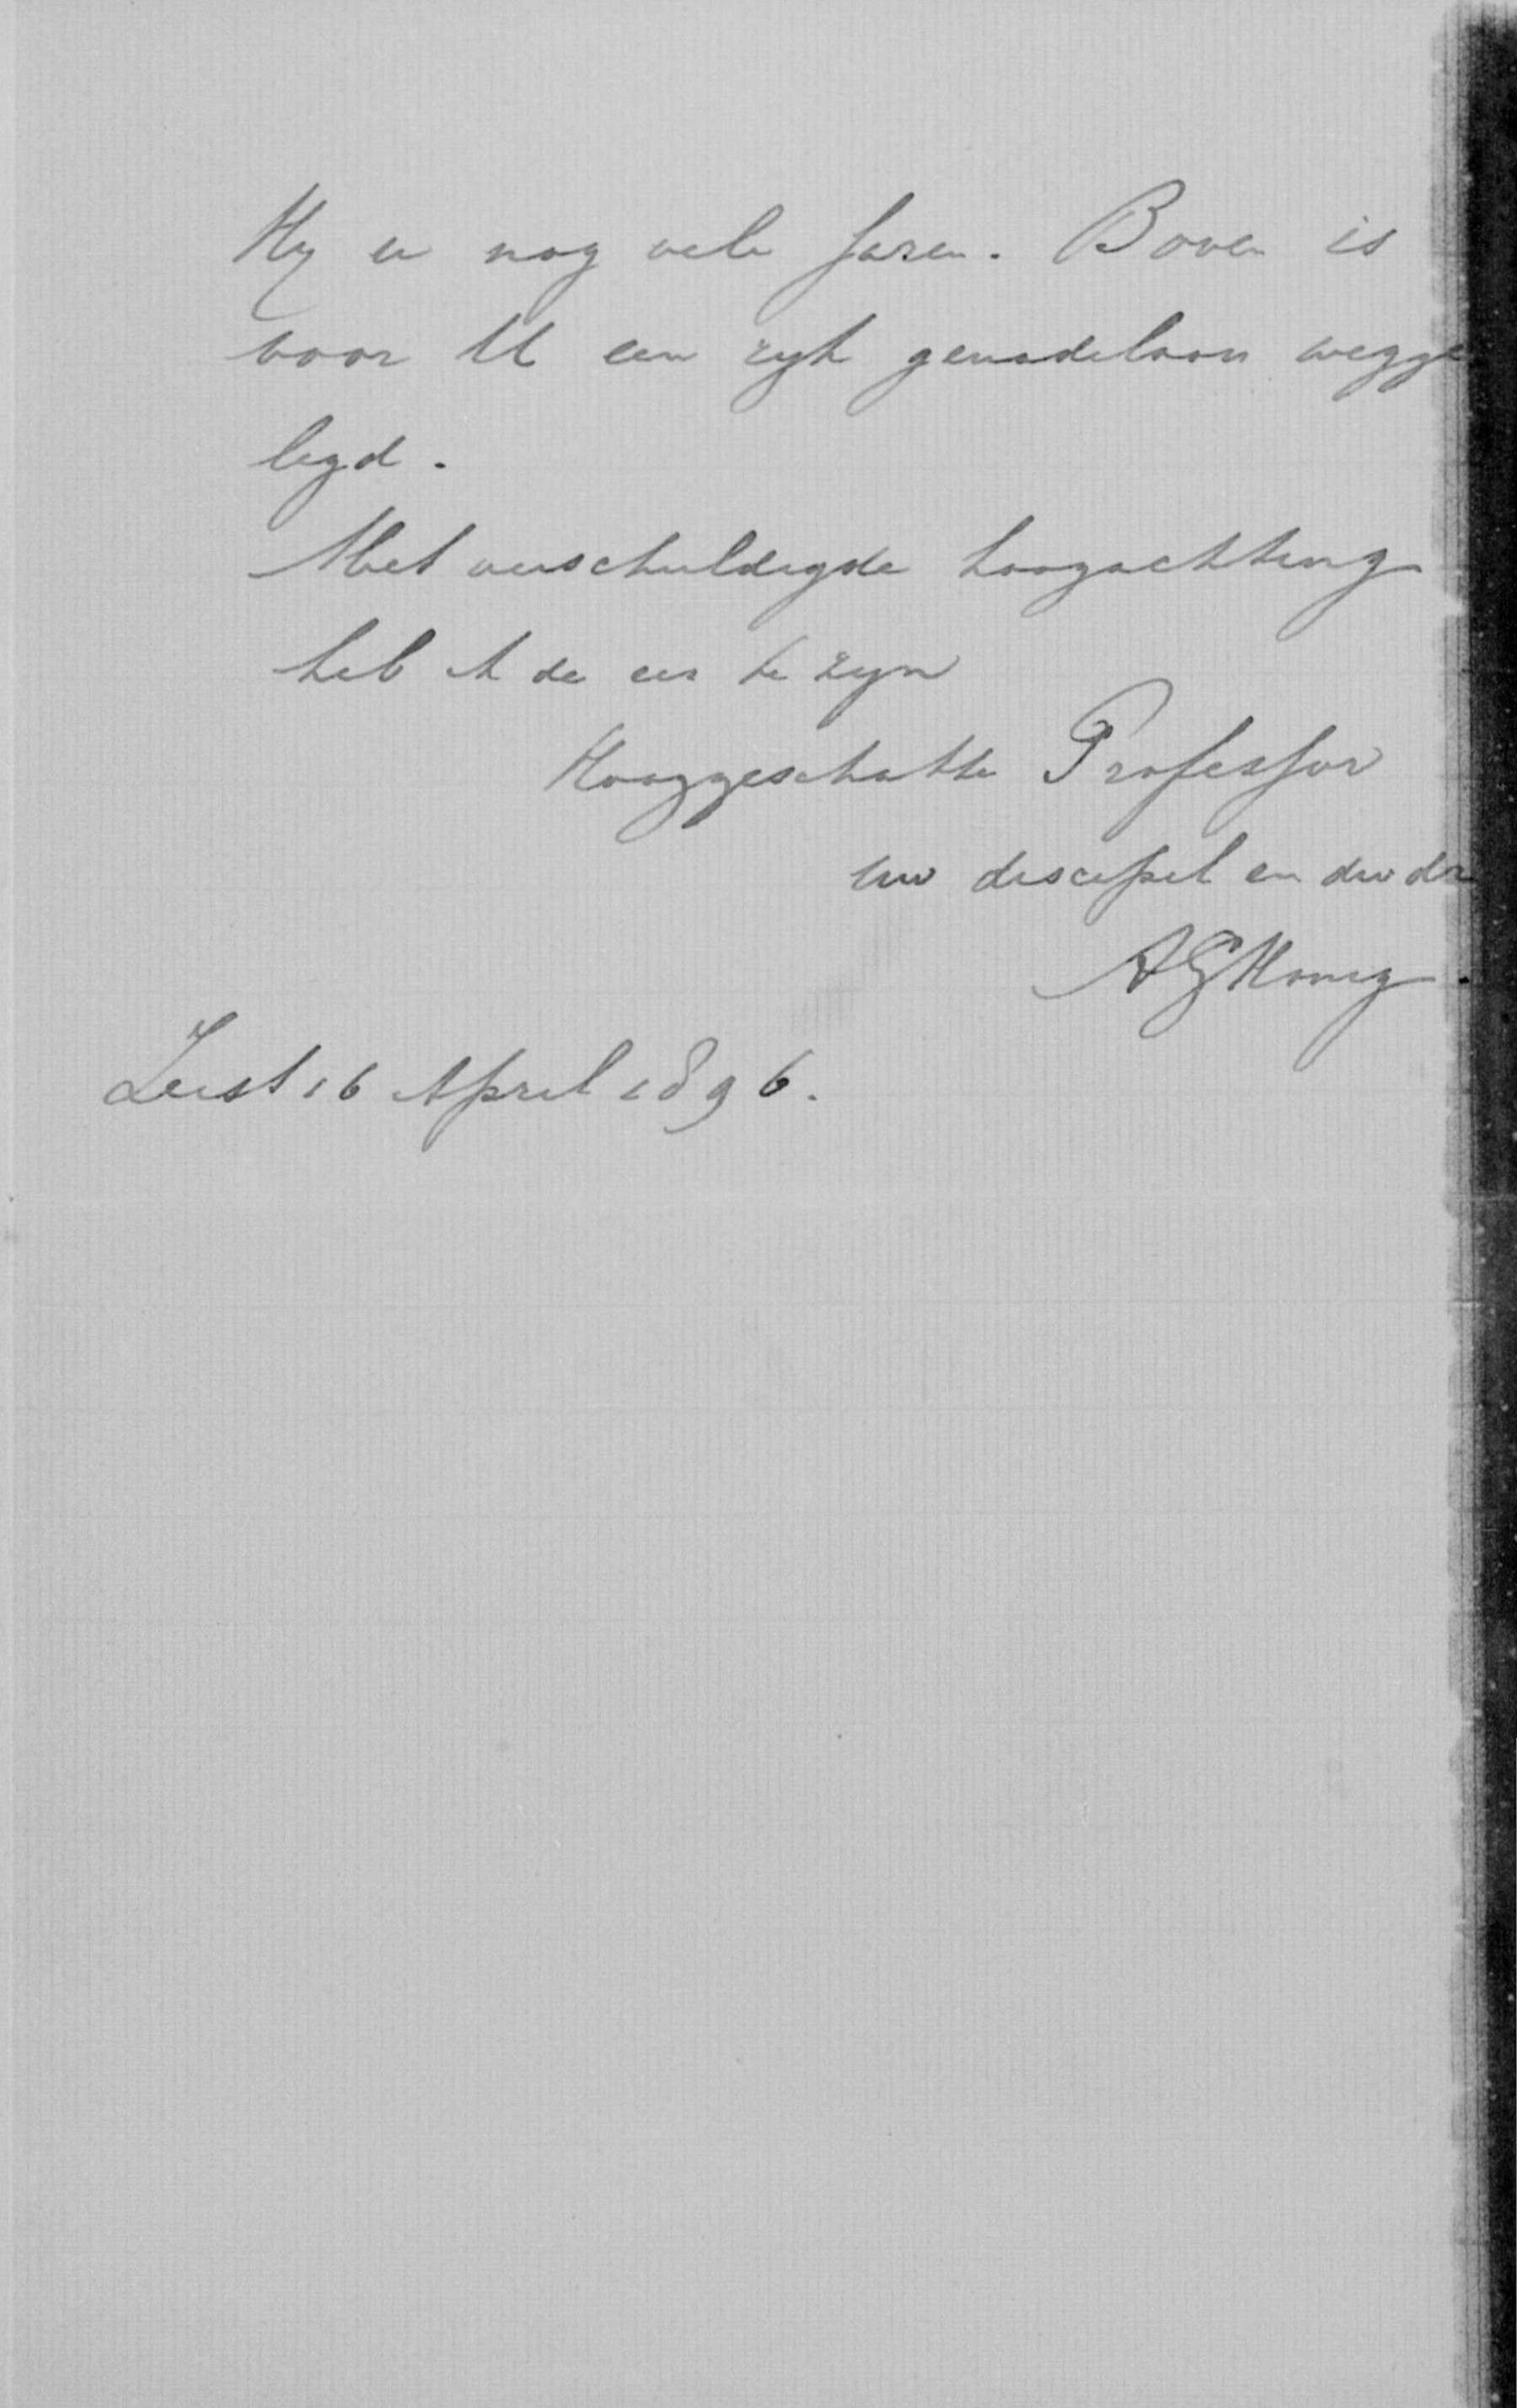 Hy er nog vele jaren. Boven is
voor U een ryk genadeloon wegge
legd.
Met verschuldigde hoogachting
heb ik de eer te zyn
Hooggeschatte Professor
Uw discipel en dw dr
AG Honig.
Zeist 16 April 1896.